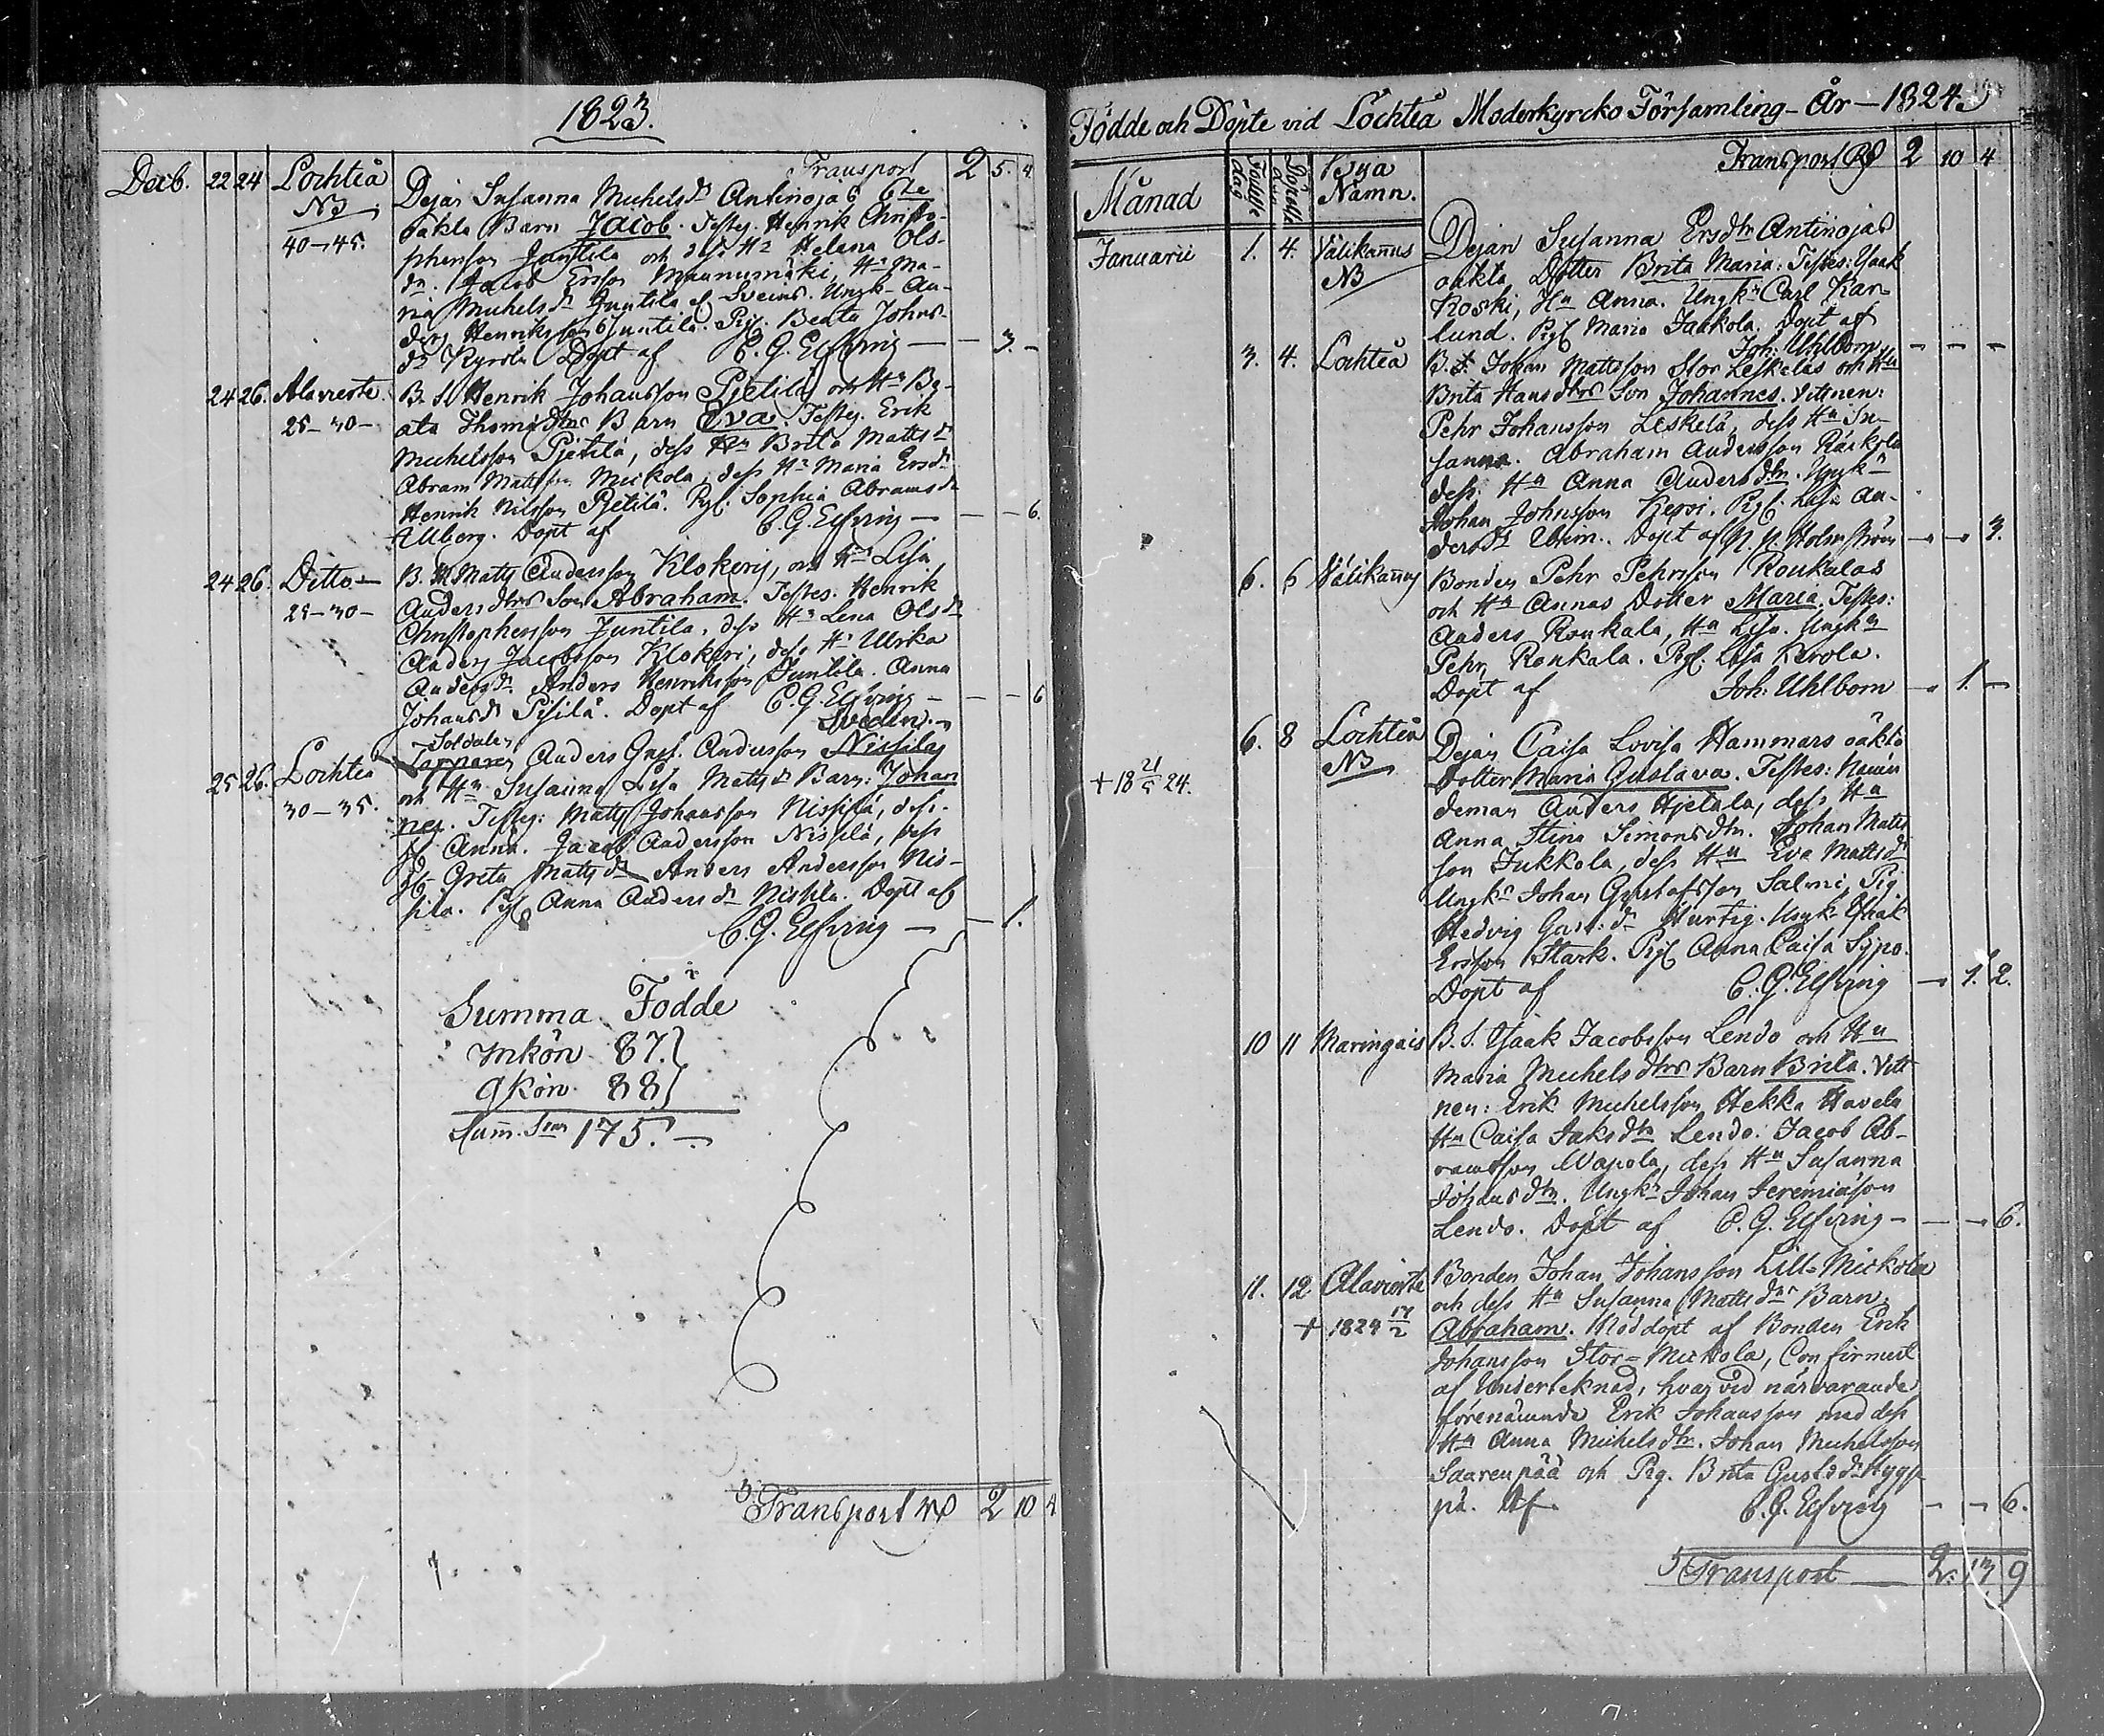 1823.
Transport 2 5. 4
Decb. 22 24 Lochteå Dejan Susanna Michelsdr Antinojas 6te
NB oäkta Barn Jacob. Testes. Henrik Christo-
40–45. phersson Juntila och dess Ha Helena Ols-
dr. Jacob Ersson Maunumäki, Ha Ma-
ria Michelsdr Juntila Ungk. An-
ders Henriksson Juntila. Pig. Beata Johns-
dr Dopt af C. G. Elfving — — 3. –
24 26. Alavieste B. S. Henrik Johansson Pietilä och Ha Be-
25–30– ata Thomædtrs Barn Eva. Testes. Erik
Michelsson Pietilä, dess Ha Brita Mattsdr
Abram Mattsson Mickola, dess Ha Maria Ersdr
Henrik Nilsson Pietilä. Pig. Sophia Abramsdr
Ullberg. Dopt af C. G. Elfving — — — 6.
24 26. Ditto — B. Matts Andersson Klokeris, och Ha Lisa
25–30– Andersdtrs Son Abraham. Testes. Henrik
Christophersson Juntila, dess Ha Lena Olsdr
Anders Jacobsson Klokeri, dess Ha Ulrika
Andersdr. Anders Henriksson Juntila. Anna
Johansdr Pisilä. Dopt af C. G. Elfving — — — 6
Soldaten Sveden.
25 26. Lochteå Anders Gust. Andersson Nissilas
30–35. och Ha Susanna Lisa Mattsdr Barn: Johan
nes. Testes: Matts Johansson Nissilä, dess
H Anna. Jacob Andersson Nissilä, dess
H Greta Mattsdr Anders Andersson Nis-
sila. Pig Anna Andersdr Nissila. Dopt af
C. G. Elfving — — 1.
Summa Födde
Mkön 87.
Qkön. 88
Sum. Srm 175. —
Transport 2 10 4
Födde och Döpte vid Lochteå Moderkyrcko Församling – År – 1824.
Månad Födelse dag Döpelse Bya Namn. Transport 2 10 4
Januarii 1. 4. Välikannus Dejan Susanna Ersdtr Antinojas
NB oäkta Dotter Brita Maria. Testes: Isaak
Koski, Ha Anna. Ungkn Carl Kar
lund. Pig Maria Jaakola. Dopt af
Joh. Uhlbom — — —
3. 4. Lochteå B. S. Johan Mattsson Stor Leskelas och Ha
Brita Hansdtrs Son Johannes. Vittnen:
Pehr Johansson Leskelä, dess Ha Su-
sanna. Abraham Andersson
dess Ha Anna Andersdtr. Ungk
Johan Johnsson Pig. Lisa An-
dersdr Dopt af Holmström — — 3.
6. 6 Välikannus Bonden Pehr Pehrsson Roukalas
och Ha Annas Dotter Maria. Testes:
Anders Roukala, Ha Lisa. Ungkn
Pehr Roukala. Pig. Lisa Kerola.
Dopt af Joh. Uhlbom — 1. —
6. 8 Lochteå Dejan Caisa Lovisa Hammars oäkta
NB
+ 18 21/5 24. Dotter Maria Gustava. Testes: Nämn
deman Anders Hjelala, dess Ha
Anna Stina Simonsdtr. Johan Matts
son Jukkola, dess Ha Eva Mattsdr
Ungkn Johan Gustafsson Salmi, Pig
Hedvig Gust:dr Hurtig. Ungk Isaak
Ersson Stark. Pig Anna Caisa Sypo.
Dopt af C. G. Elfving — 1. 2.
10 11 Maringais B. S. Isaak Jacobsson Lendo och Ha
Maria Michelsdtrs Barn Brita. Vitt
nen: Erik Michelsson Hekka Havela
Ha Caisa Isaksdtr Lendo. Jacob Ab-
ramsson Wapola, dess Ha Susanna
Johansdtr. Ungkn Johan Jeremiasson
Lendo. Dopt af C. G. Elfving — — — 6.
11. 12 Alavieste Bonden Johan Johansson Lill=Mickola
och dess Ha Susanna Mattsdrs Barn.
+ 1824 17/2 Abraham. Nöddöpt af Bonden Erik
Johansson Stor=Mickola, Confirmert
af Underteknad, hvarvid närvarande
förenämnde Erik Johansson med dess
Ha Anna Michelsdtr. Johan Michelsson
Saarenpää och Pig. Brita Gustsdr Hyyp
pä. Af C. G. Elfving — — 6.
Transport — 2. 13. 9